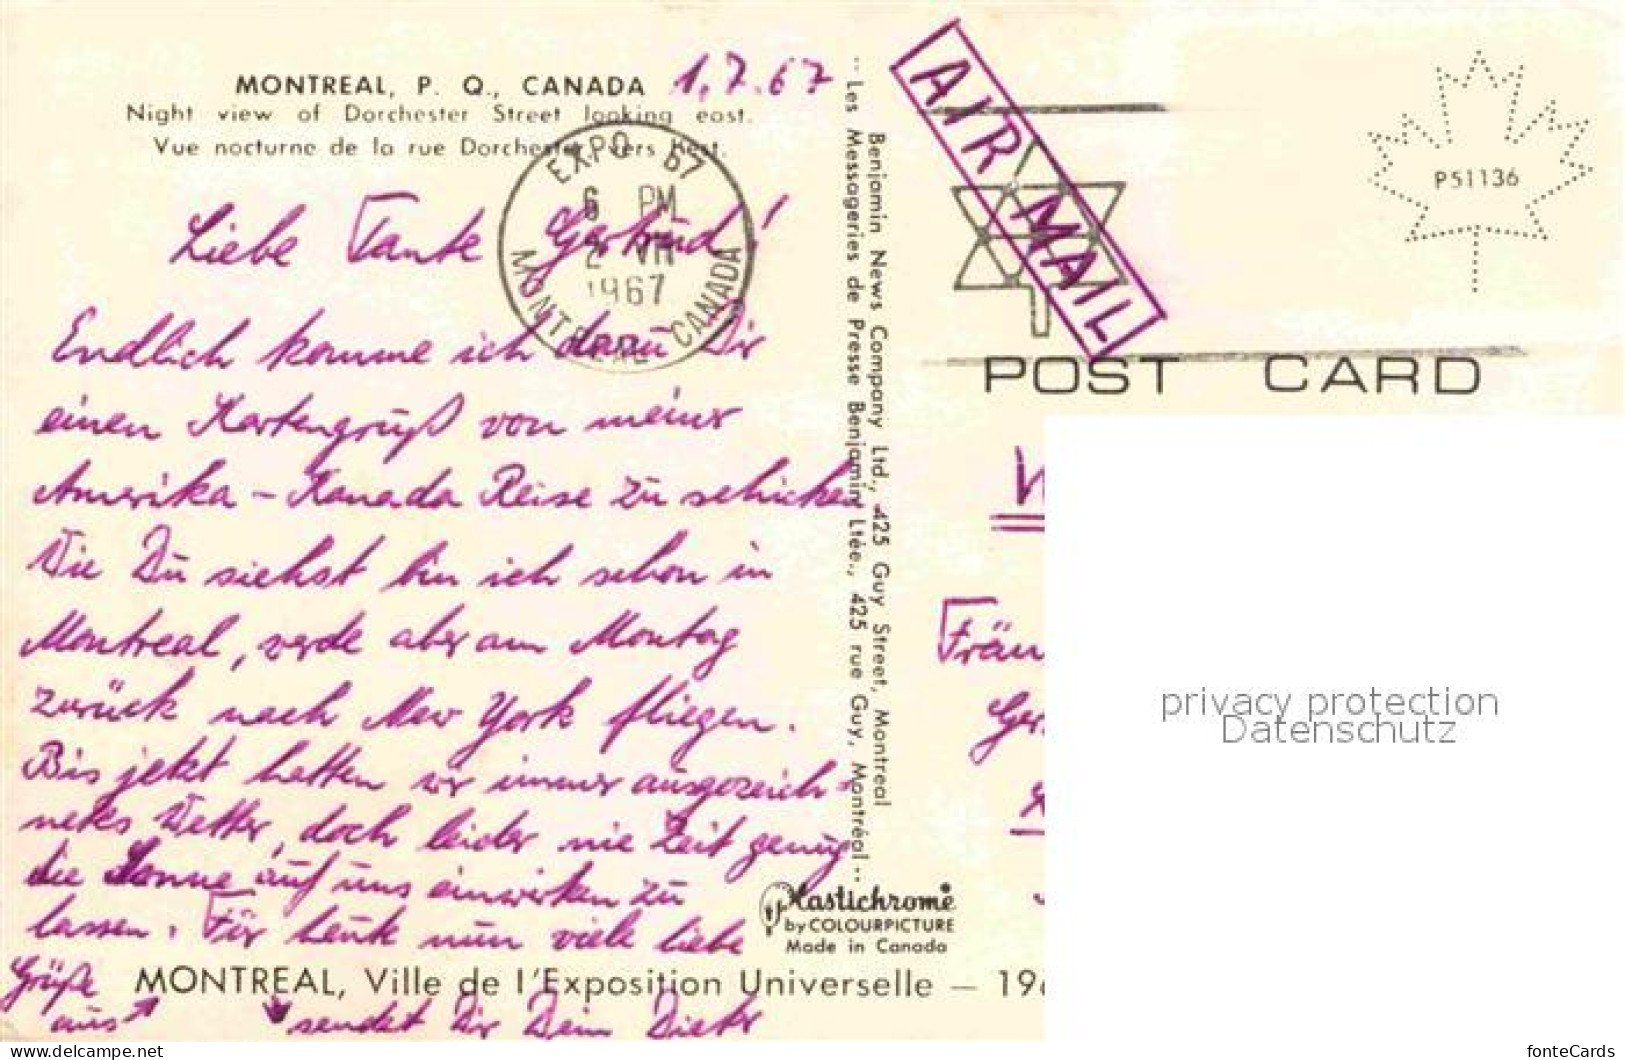 MONTREAL, P. Q., CANADA 1.7.67
Night view of Dorchester Street looking east.
Vue nocturne de la rue Dorchester, vers l'est.
EXPO 67
6 PM
2 VII
1967
MONTREAL CANADA
Liebe Tante Gertrud!
Endlich komme ich dazu Dir
einen Kartengruß von meiner
Amerika - Kanada Reise zu schicken
Wie Du siehst bin ich schon in
Montreal, werde aber am Montag
zurück nach New York fliegen.
Bis jetzt hatten wir immer ausgezeich-
netes Wetter, doch leider nie Zeit genug
die Sonne auf uns einwirken zu
lassen. Für heute nun viele liebe
Grüße
aus
sendet Dir Dein Dieter
MONTREAL, Ville de l'Exposition Universelle — 196
Benjamin News Company Ltd., 425 Guy Street, Montreal
-- Les Messageries de Presse Benjamin Ltée., 425 rue Guy, Montréal --
Plastichrome
by COLOURPICTURE
Made in Canada
AIR MAIL
P51136
POST CARD
W
Fräu
Ger
privacy protection
Datenschutz
www.delcampe.net
fonteCards